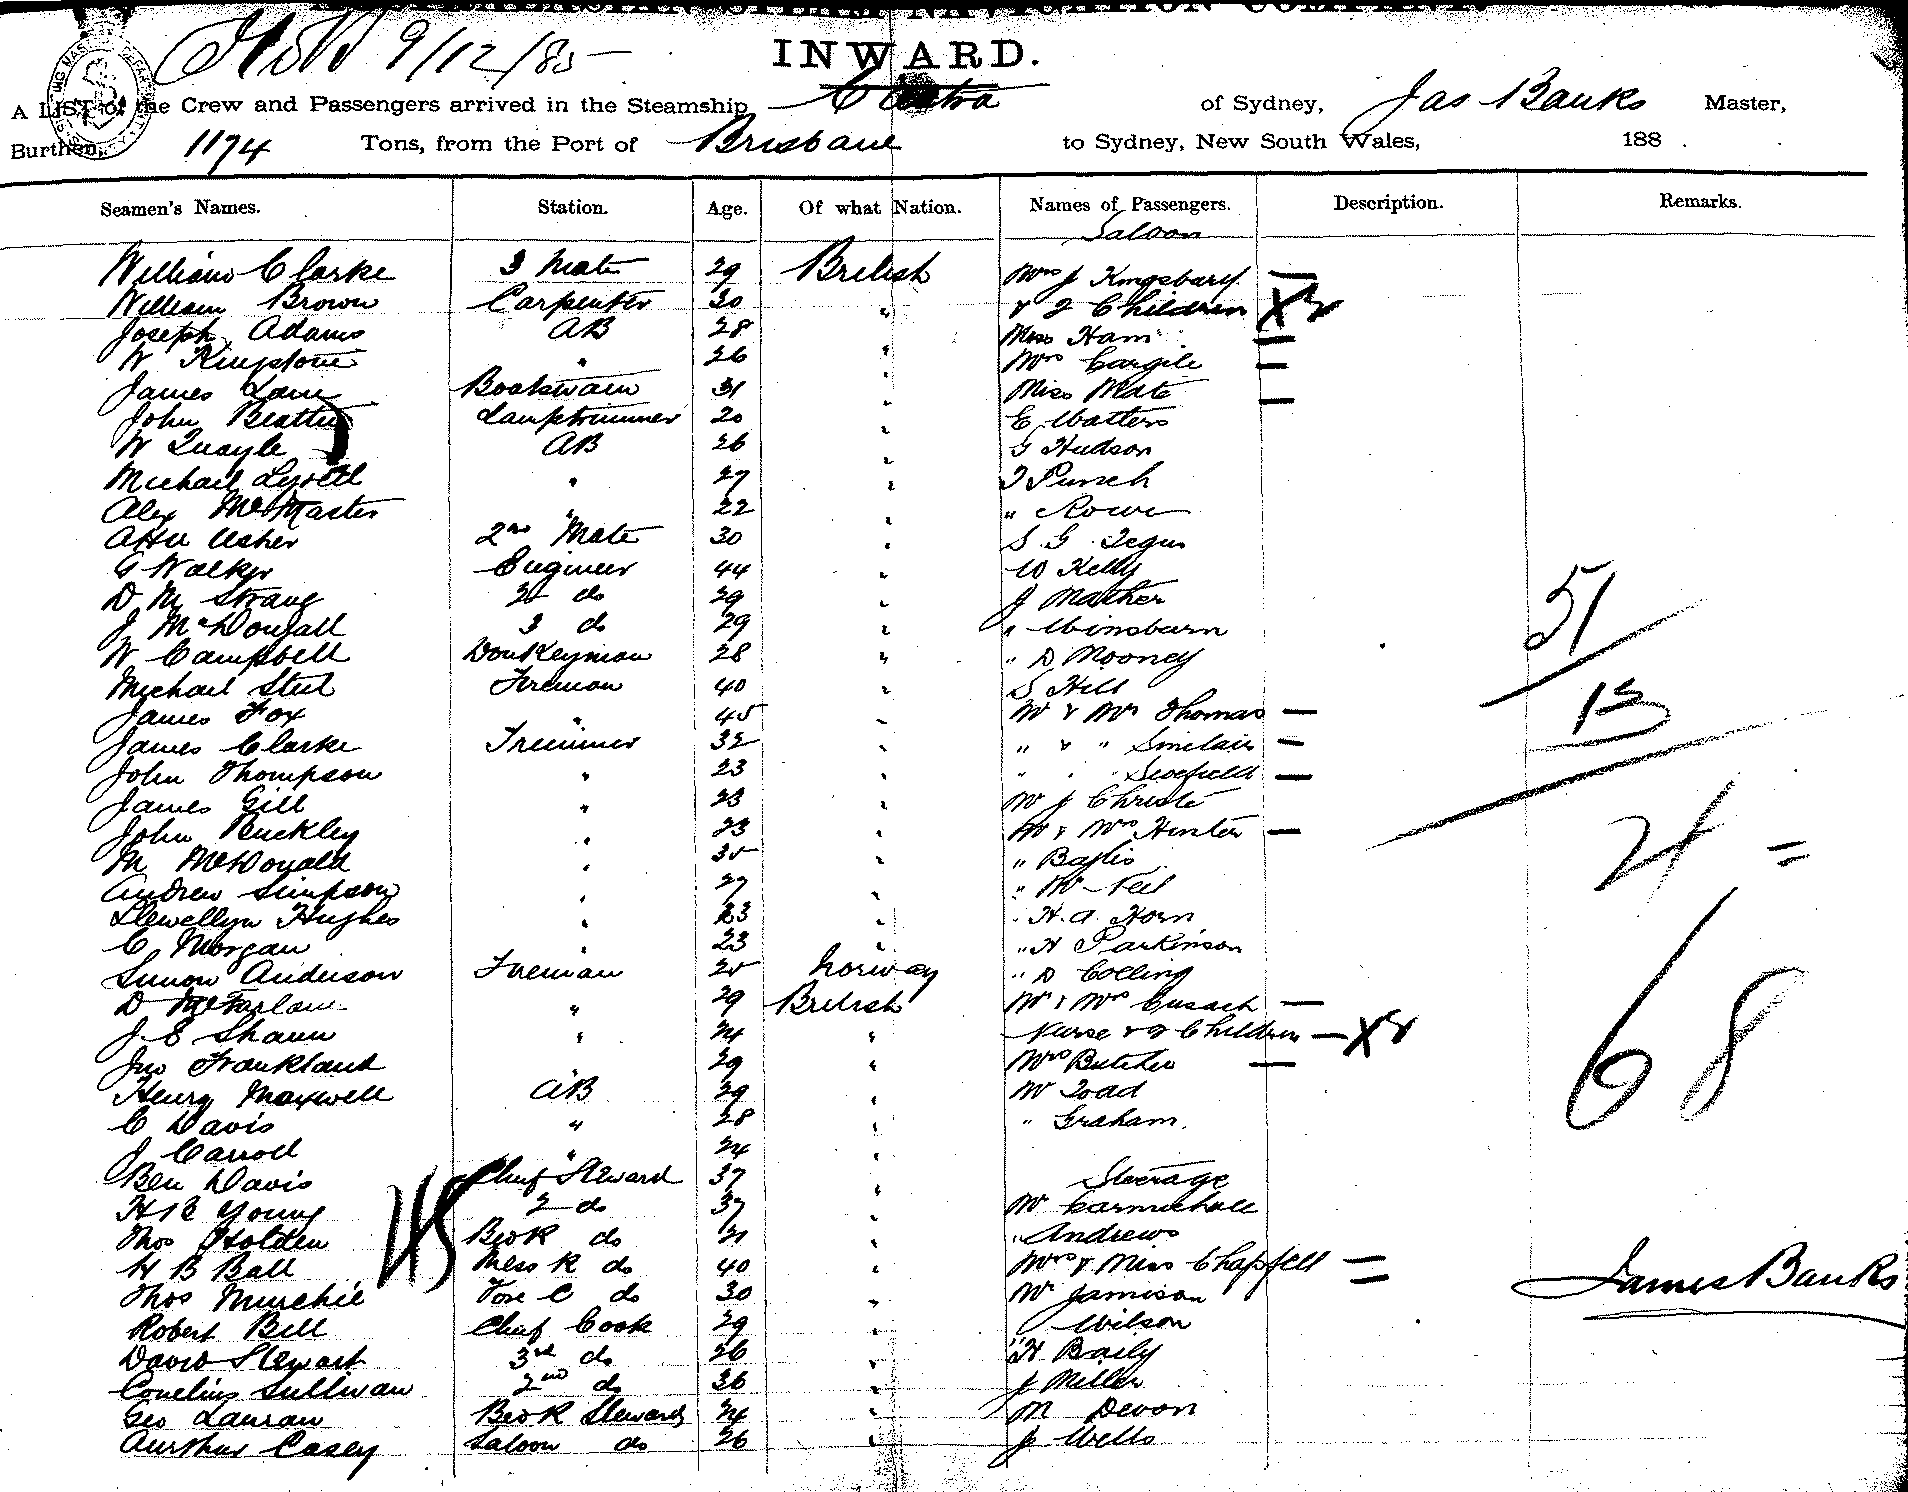 INWARD.
9/12/85
A LIST of the Crew and Passengers arrived in the Steamship of Sydney, Jas Banks Master,
Burthen, 1174 Tons, from the Port of Brisbane to Sydney, New South Wales, 188 .
Seamen's Names. Station. Age. Of what Nation. Names of Passengers. Description. Remarks.
Saloon
William Clarke 3 Mate 29 British Mrs J Kingsbury
William Brown Carpenter 30 " & 2 Children
Joseph Adams AB 28 " Miss Ham
W Kingstone " 26 " Mrs Cargile
James Lane Boatswain 31 " Miss Mate
John Beattie Lamptrimmer 20 " E Watters
W Quayle AB 26 " G Hudson
Michael " 27 " J Punch
Alex McMaster " 22 " " Rowe
Usher 2nd Mate 30 " S G
G Walker Engineer 44 " W Kelly
D M Strang 2 do 29 " J Mather
J McDougall 3 do 29 " "
W Campbell Donkeyman 28 " " D Mooney
Michael Steel Fireman 40 " S Hill
James Fox " 45 " Mr & Mrs Thomas
James Clarke Trimmer 32 " " & " Sinclair
John Thompson " 23 " " " "
James Gill " 23 " Mr J Christie
John Buckley " 23 " Mr & Mrs Hunter
M McDonald " 35 " "
Andrew Simpson " 27 " " McNeil
Llewellyn Hughes " 23 " " H. A. Horn
C Morgan " 23 " " H Parkinson
Simon Anderson Fireman 25 Norway " D Colling
D McFarlane " 29 British Mr & Mrs Cusack
J E Shann " 24 " Nurse & 2 Children
Jno Frankland 29 " Mrs Butcher
Henry Maxwell AB 29 " Mr Toad
C Davis " 28 " " Graham.
J Carroll " 24 "
Ben Davis Chief Steward 37 " Steerage
Young 2 do 37 " Mr Carmichael
Thos Holden do 21 " " Andrews
H B Ball Mess R do 40 " Mrs & Miss Chappell
Thos Murchie Fore C do 30 " Mr Jamison
Robert Bell Chief Cook 29 " " Wilson
David Stewart 3rd do 26 " " H Baily
Cornelius Sullivan 2nd do 36 " J Miller
Geo Steward 24 " M Devon
Aurthur Casey Saloon do 26 " J Wells
51
13
4 =
68
James Banks